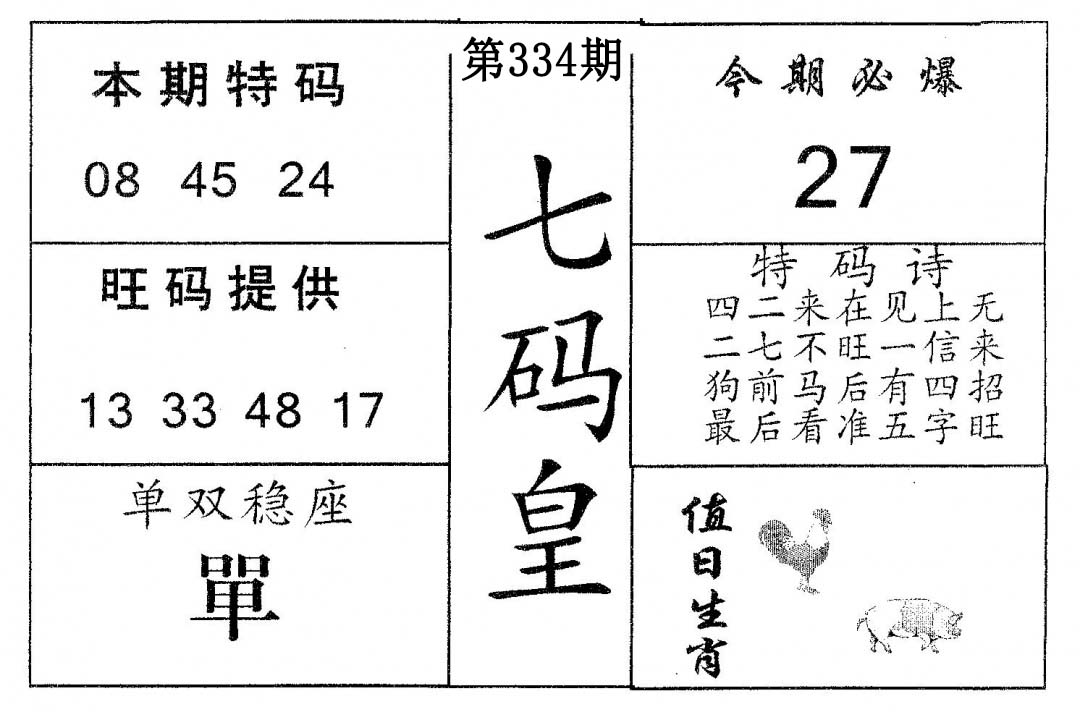 第334期
七码皇
本期特码
08 45 24
旺码提供
13 33 48 17
单双稳座
單
今期必爆
27
特码诗
四二来在见上无
二七不旺一信来
狗前马后有四招
最后看准五字旺
值日生肖